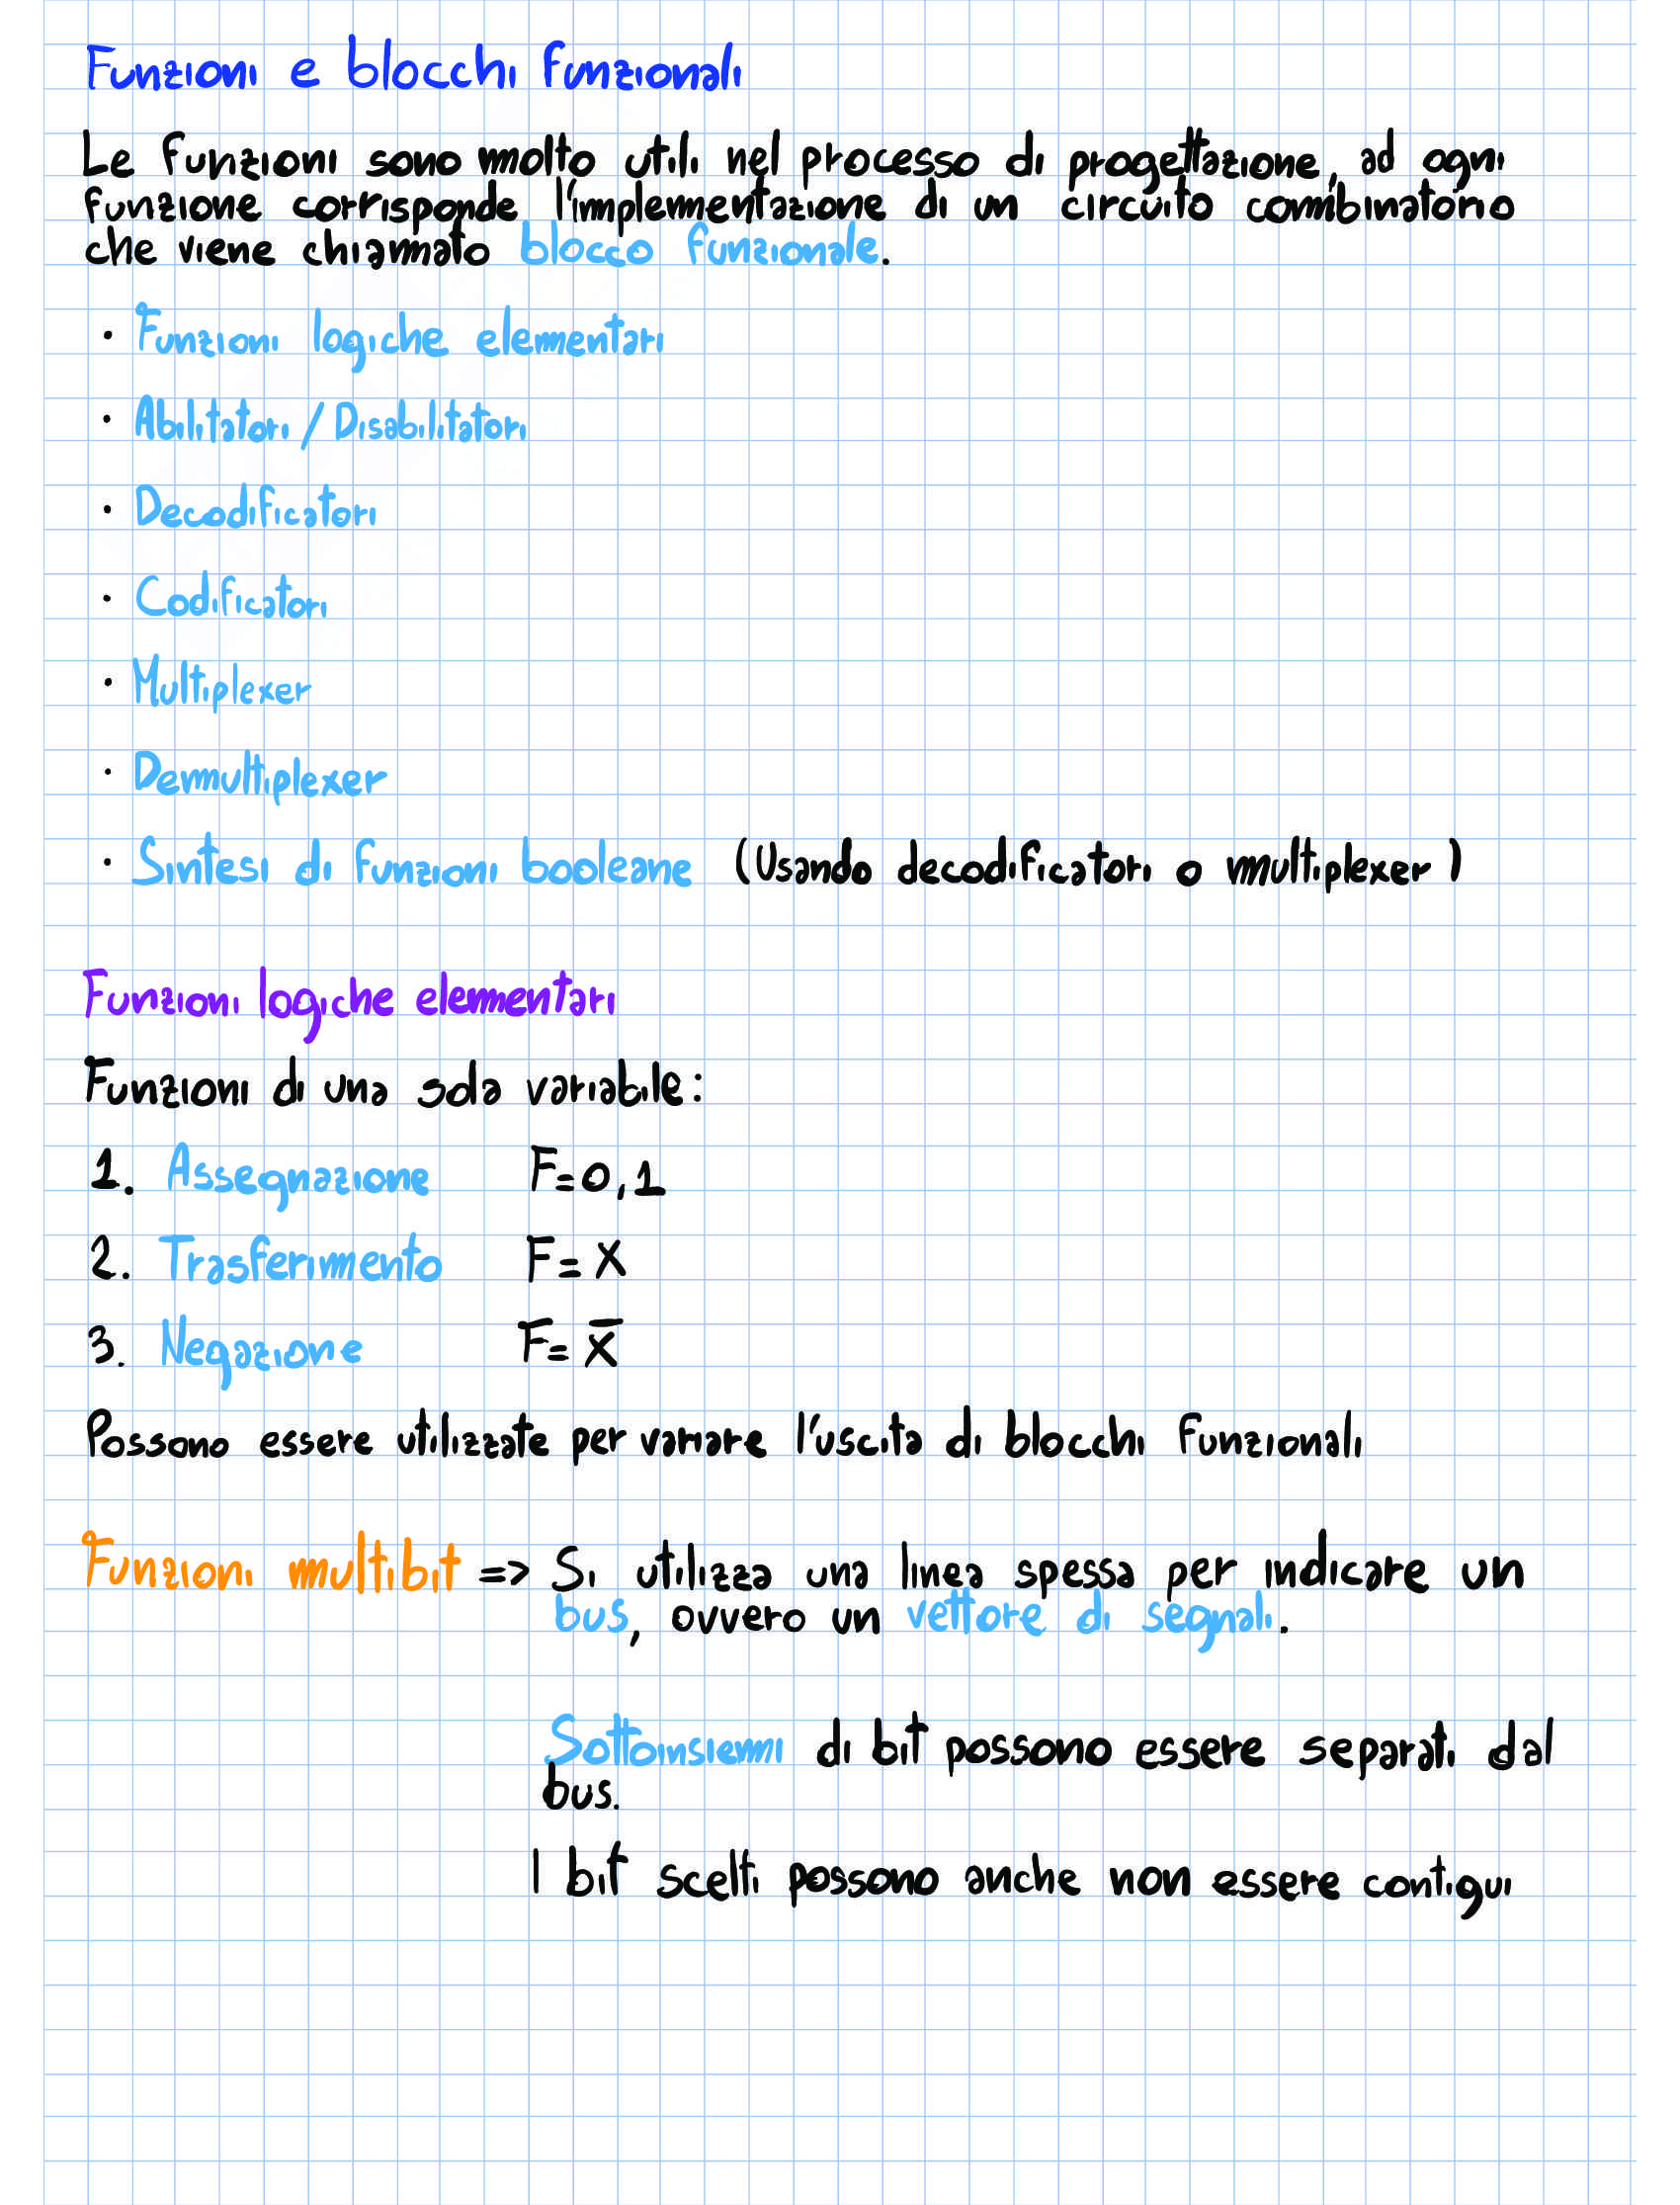 Funzioni e blocchi funzionali
Le funzioni sono molto utili nel processo di progettazione, ad ogni
funzione corrisponde l'implementazione di un circuito combinatorio
che viene chiamato blocco funzionale.
· Funzioni logiche elementari
· Abilitatori / Disabilitatori
· Decodificatori
· Codificatori
· Multiplexer
· Demultiplexer
· Sintesi di funzioni booleane (Usando decodificatori o multiplexer)
Funzioni logiche elementari
Funzioni di una sola variabile:
1. Assegnazione F=0,1
2. Trasferimento F= X
3. Negazione F= X̅
Possono essere utilizzate per variare l'uscita di blocchi funzionali
Funzioni multibit => Si utilizza una linea spessa per indicare un
bus, ovvero un vettore di segnali.
Sottoinsiemi di bit possono essere separati dal
bus.
I bit scelti possono anche non essere contigui